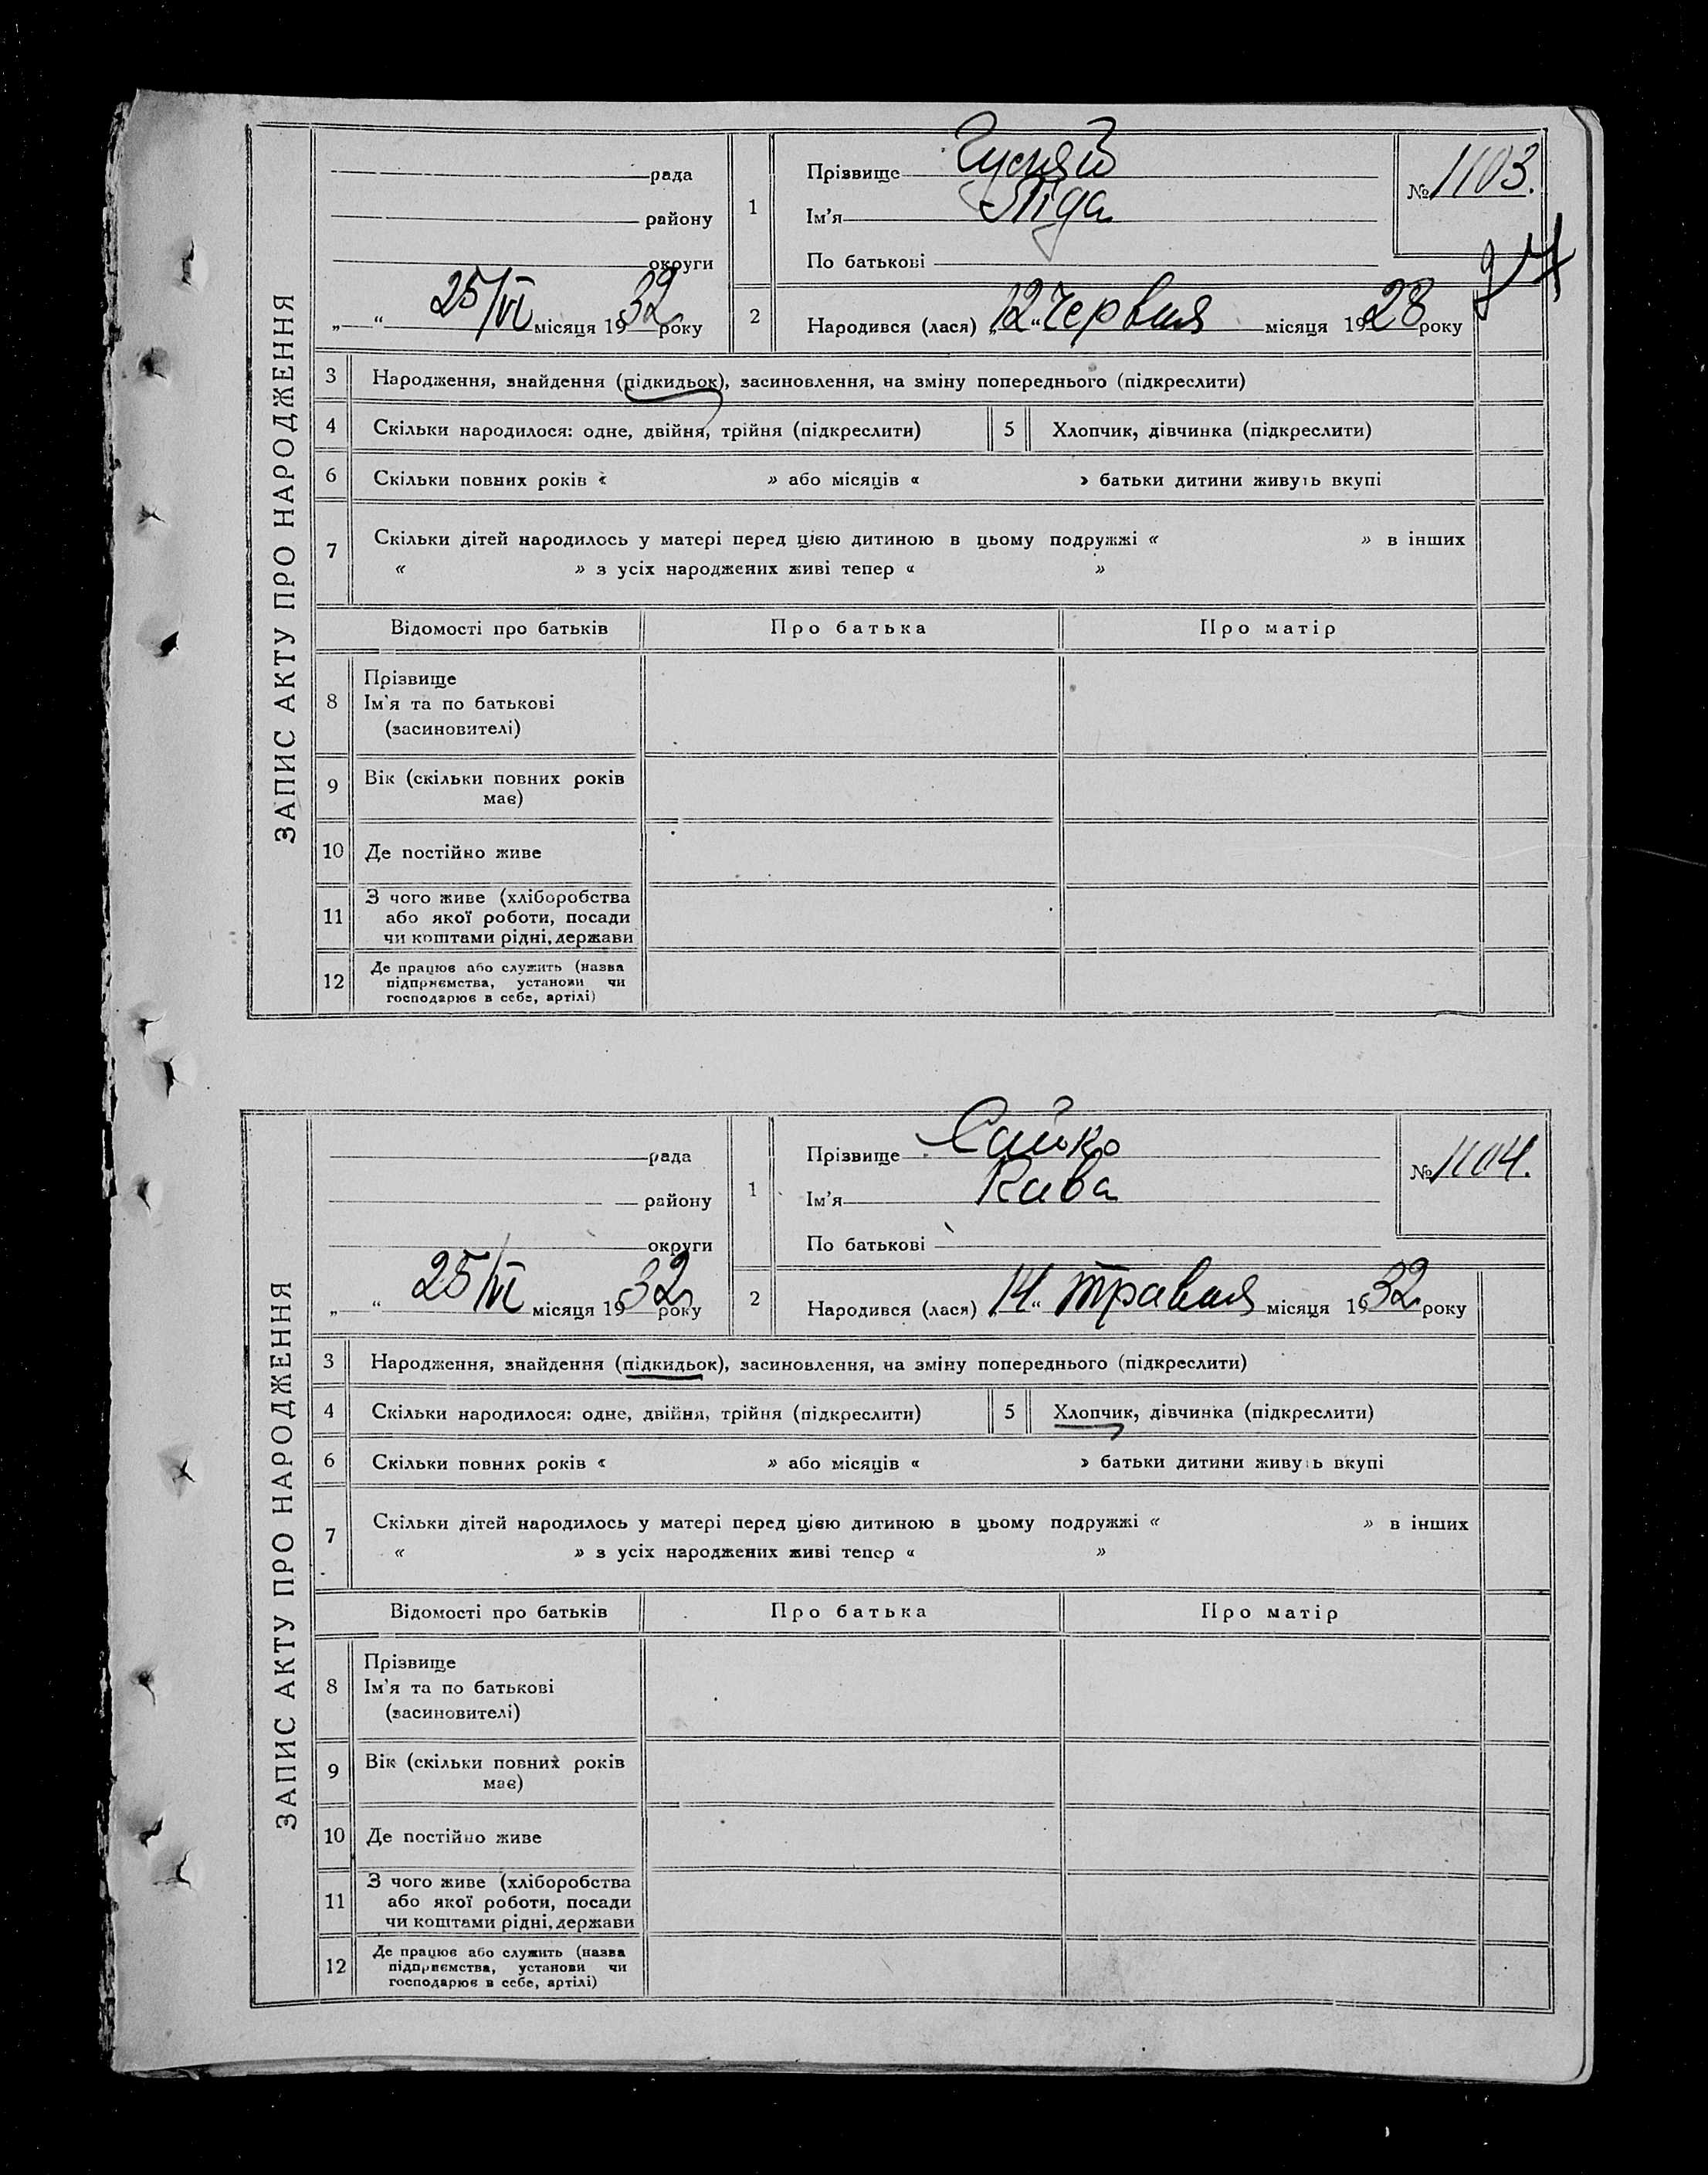 ЗАПИС АКТУ ПРО НАРОДЖЕННЯ
рада
району
округи
„ “ 25/VI місяця 1932 року
1
Прізвище
Ім'я Ліда
По батькові
№ 1103.
2
Народився (лася) „12“ Червня місяця 1928 року
3 Народження, знайдення (підкидьок), засиновлення, на зміну попереднього (підкреслити)
4 Скільки народилося: одне, двійня, трійня (підкреслити) 5 Хлопчик, дівчинка (підкреслити)
6 Скільки повних років « » або місяців « » батьки дитини живуть вкупі
7 Скільки дітей народилось у матері перед цією дитиною в цьому подружжі « » в інших
« » з усіх народжених живі тепер « »
Відомості про батьків Про батька Про матір
8 Прізвище
Ім'я та по батькові
(засиновителі)
9 Вік (скільки повних років
має)
10 Де постійно живе
11 З чого живе (хліборобства
або якої роботи, посади
чи коштами рідні, держави
12 Де працює або служить (назва
підприємства, установи чи
господарює в себе, артілі)
ЗАПИС АКТУ ПРО НАРОДЖЕННЯ
рада
району
округи
„ “ 25/VI місяця 1932 року
1
Прізвище Сайко
Ім'я
По батькові
№ 1104.
2
Народився (лася) „14“ травня місяця 1932 року
3 Народження, знайдення (підкидьок), засиновлення, на зміну попереднього (підкреслити)
4 Скільки народилося: одне, двійня, трійня (підкреслити) 5 Хлопчик, дівчинка (підкреслити)
6 Скільки повних років « » або місяців « » батьки дитини живуть вкупі
7 Скільки дітей народилось у матері перед цією дитиною в цьому подружжі « » в інших
« » з усіх народжених живі тепер « »
Відомості про батьків Про батька Про матір
8 Прізвище
Ім'я та по батькові
(засиновителі)
9 Вік (скільки повних років
має)
10 Де постійно живе
11 З чого живе (хліборобства
або якої роботи, посади
чи коштами рідні, держави
12 Де працює або служить (назва
підприємства, установи чи
господарює в себе, артілі)